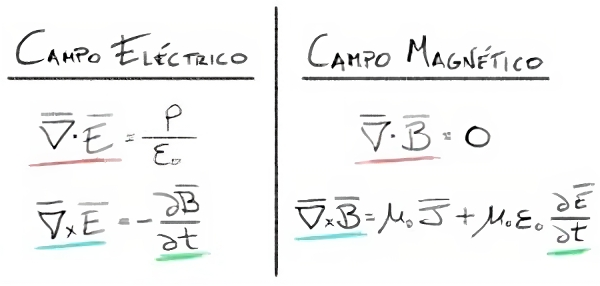 CAMPO ELÉCTRICO
∇̅·E̅ = ρ/ε₀
∇̅×E̅ = -∂B̅/∂t
CAMPO MAGNÉTICO
∇̅·B̅ = 0
∇̅×B̅ = μ₀J̅ + μ₀ε₀ ∂E̅/∂t